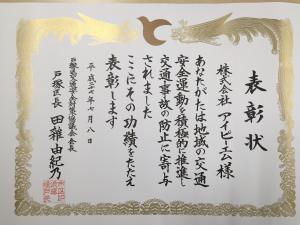 表彰状
株式会社 アイビーム 様
あなたがたは地域の交通
安全運動を積極的に推進し
交通事故の防止に寄与
されました
ここにその功績をたたえ
表彰します
平成二十七年七月八日
戸塚区交通安全対策協議会会長
戸塚区長 田雜由紀乃